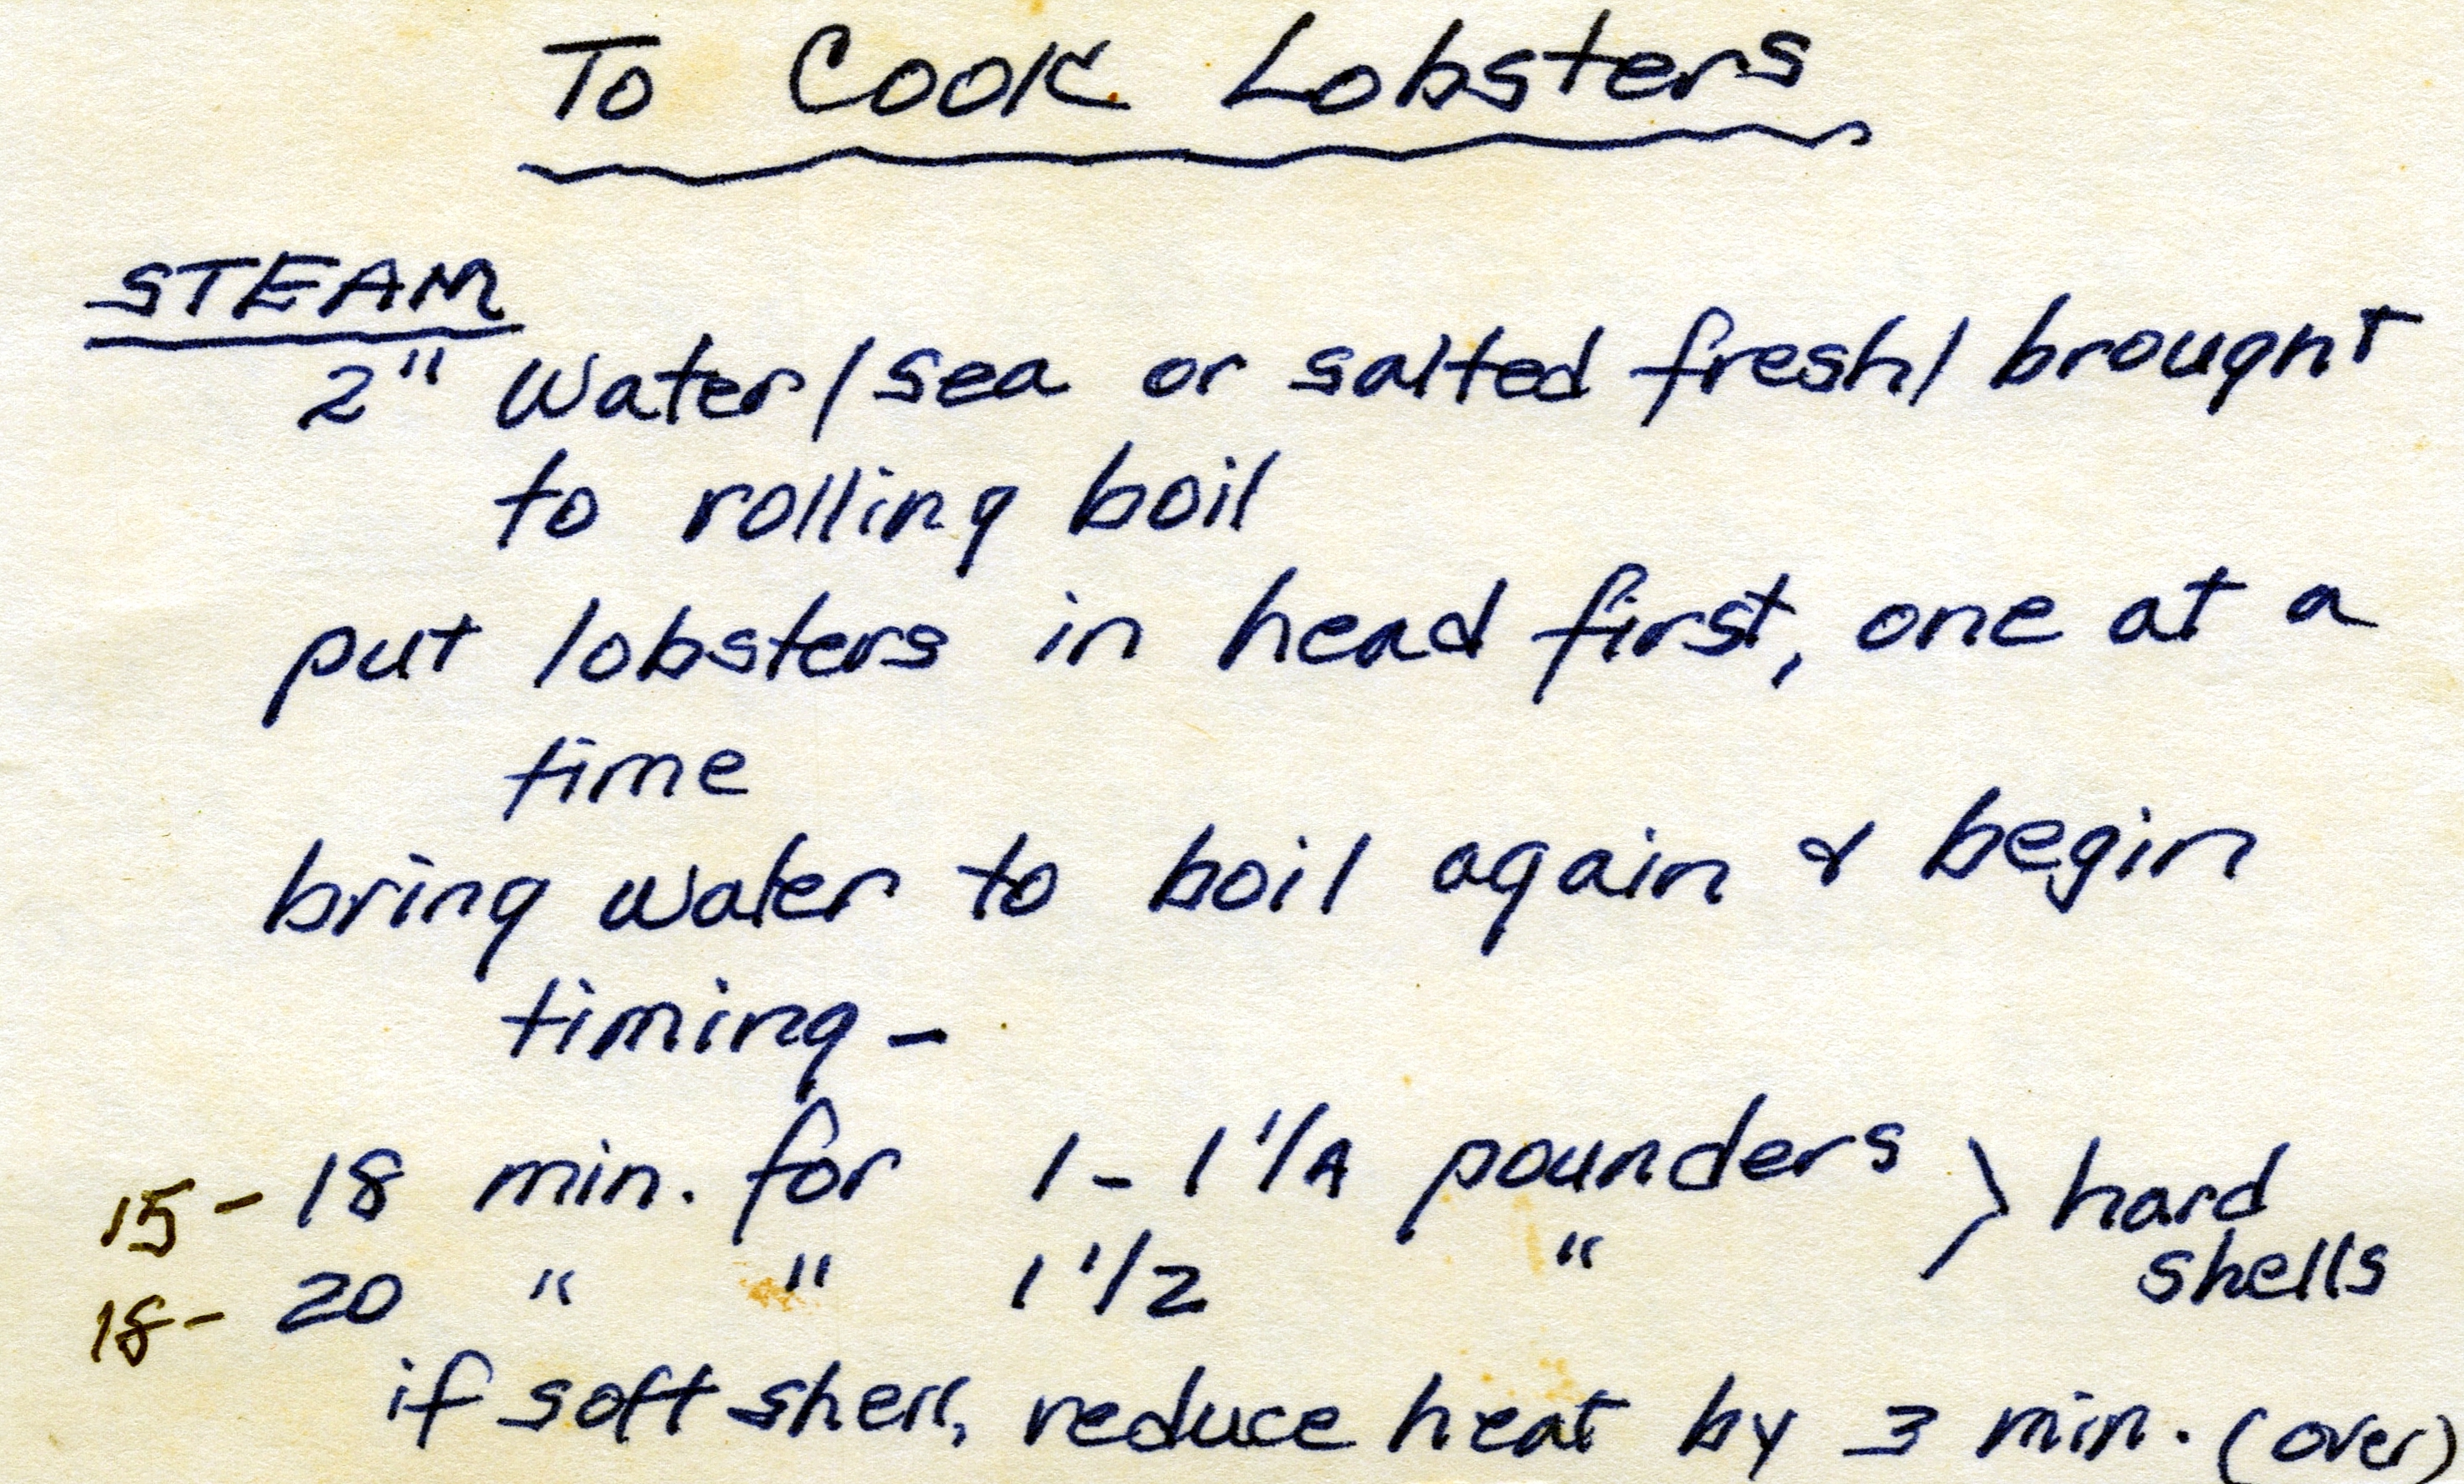 To Cook Lobsters
STEAM
2" Water/sea or salted fresh/ brought
to rolling boil
put lobsters in head first, one at a
time
bring water to boil again & begin
timing -
15 - 18 min. for 1 - 1 1/4 pounders } hard
shells
18 - 20 " " 1 1/2 "
if soft shell, reduce heat by 3 min. (over)